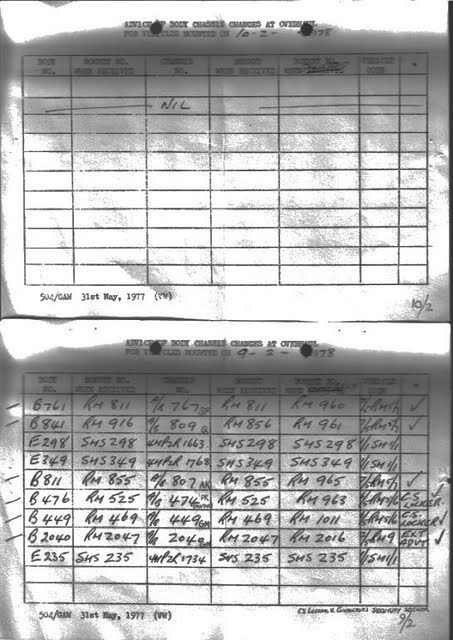 ADVICE OF BODY CHASSIS CHANGES AT OVERHAUL
FOR VEHICLES MOUNTED ON 10-2- 1978
BODY NO. BONNET NO. WHEN RECEIVED CHASSIS NO. BONNET WHEN RECEIVED BONNET NO. WHEN VEHICLE CODE *
NIL
50Z/GAN 31st May, 1977 (VW)
10/2
ADVICE OF BODY CHASSIS CHANGES AT OVERHAUL
FOR VEHICLES MOUNTED ON 9-2- 1978
BODY NO. BONNET NO. WHEN RECEIVED CHASSIS NO. BONNET WHEN RECEIVED BONNET NO. WHEN VEHICLE CODE *
B761 RM 811 767 SF RM 811 RM 960 ✓
B841 RM 916 809 Q RM 856 RM 961 ✓
E298 SMS 298 4HP2R 1663 SMS 298 SMS 298 1/SM1/1
E349 SMS 349 4HP2R 1768 SMS 349 SMS 349 1/SM1/1
B811 RM 865 807 AK RM 855 RM 965 ✓
B476 RM 525 474 RM 525 RM 963 C.S. LOCKER ✓
B449 RM 469 449 GM RM 469 RM 1011 C.S. LOCKER ✓
B2040 RM 2047 2049 RM 2047 RM 2016 EXT ADVT ✓
E235 SMS 235 4HP2R 1734 SMS 235 SMS 235 1/SM1/1
50Z/GAN 31st May, 1977 (VW)
CS LOCKER = CONDUCTORS SECURITY LOCKER
9/2